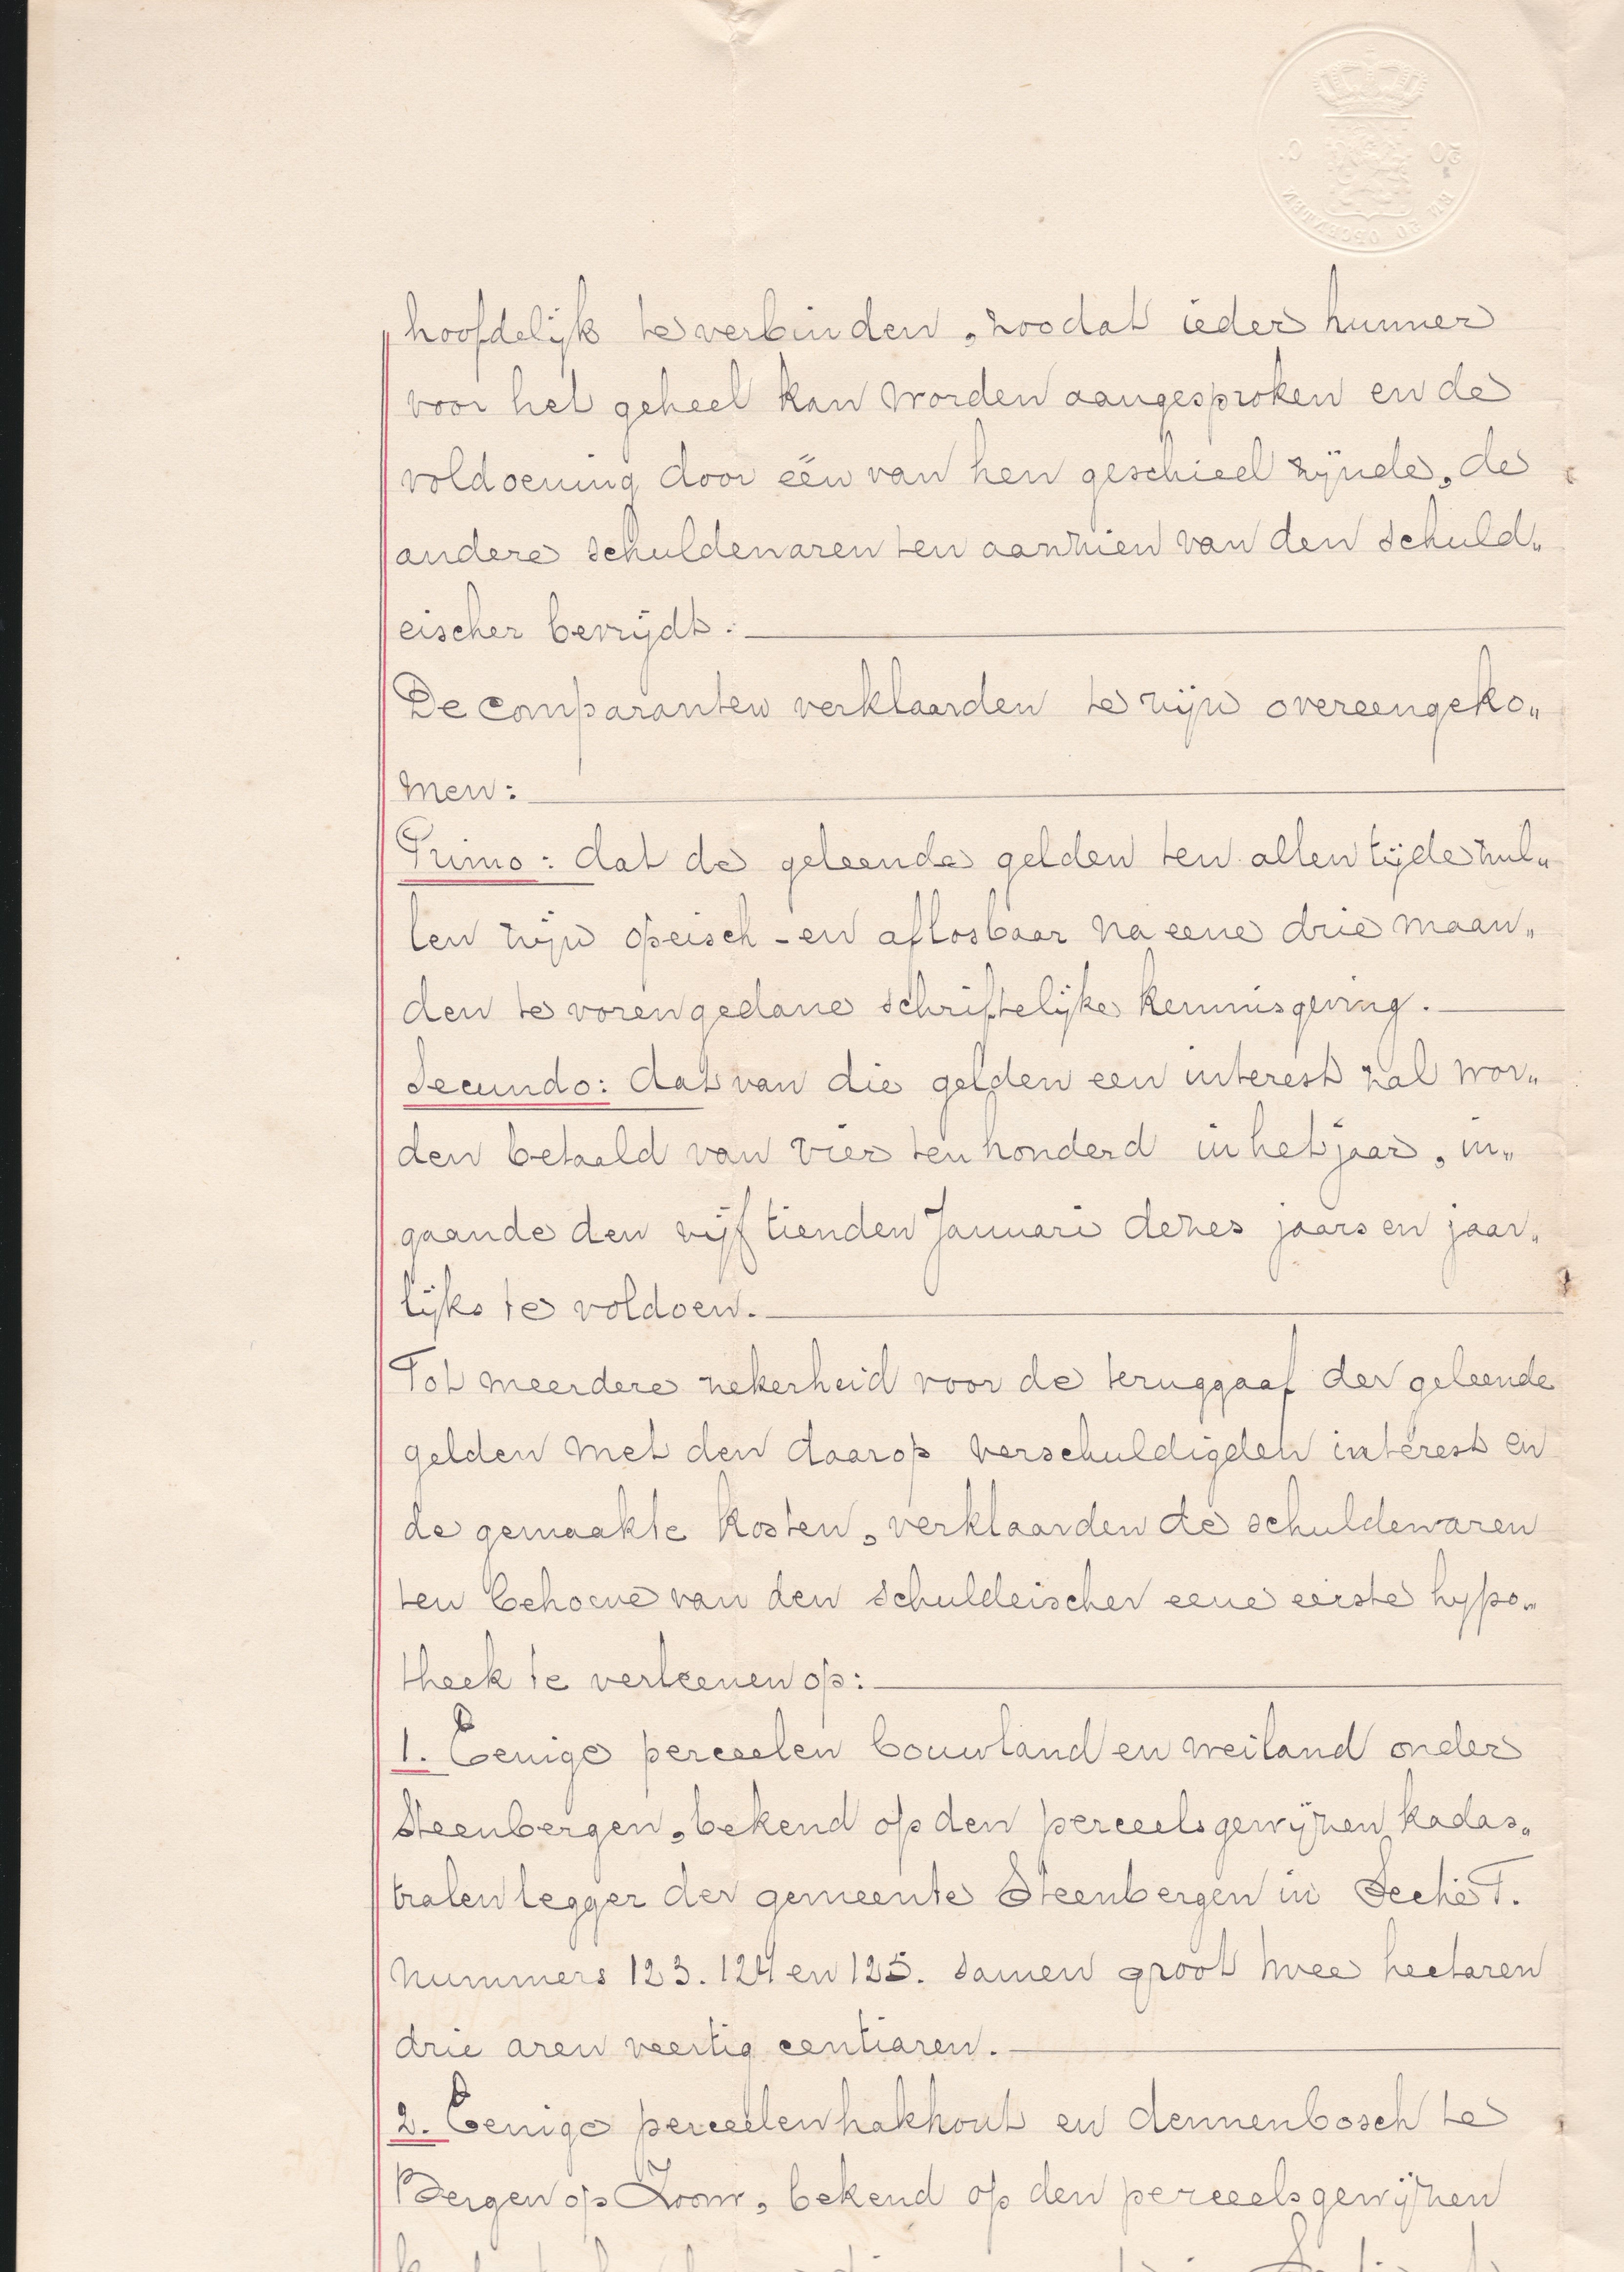 50 C.
EN 20 OPCENTEN
hoofdelijk te verbinden, zoodat ieder hunner
voor het geheel kan worden aangesproken en de
voldoening door één van hen geschied zijnde, de
andere schuldenaren ten aanzien van den schuld„
eischer bevrijdt.
De comparanten verklaarden te zijn overeengeko„
men:
Primo: dat de geleende gelden ten allen tijde zul„
len zijn opeisch-en aflosbaar na eene drie maan„
den te voren gedane schriftelijke kennisgeving.
Secundo: dat van die gelden een interest zal wor„
den betaald van vier ten honderd in het jaar, in„
gaande den vijftienden Januari dezes jaars en jaar„
lijks te voldoen.
Tot meerdere zekerheid voor de teruggaaf der geleende
gelden met den daarop verschuldigden intérest en
de gemaakte kosten, verklaarden de schuldenaren
ten behoeve van den schuldeischer eene eerste hypo„
theek te verleenen op:
1. Eenige perceelen bouwland en weiland onder
Steenbergen, bekend op den perceelsgewijzen kadas„
tralen legger der gemeente Steenbergen in Sectie T.
nummers 123. 124 en 125. samen groot twee hectaren
drie aren veertig centiaren.
2. Eenige perceelen hakhout en dennenbosch te
Bergen op Zoom, bekend op den perceelsgewijzen